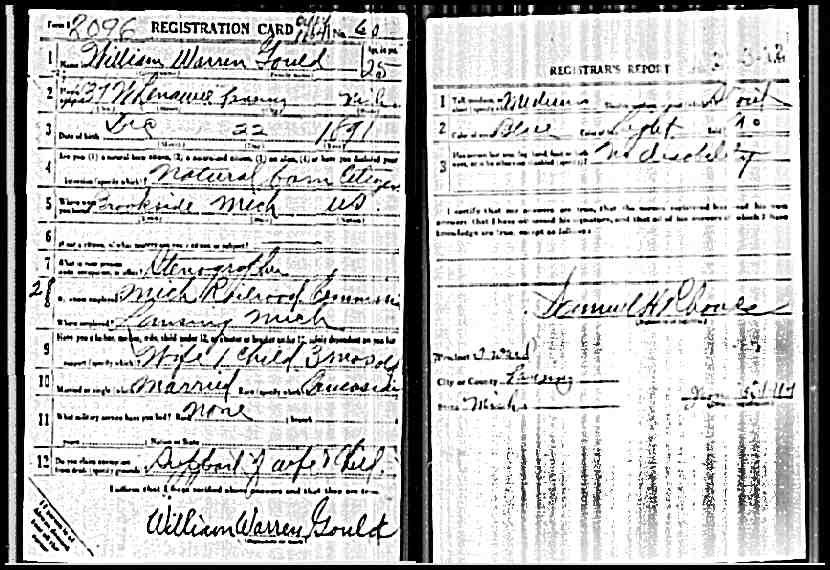 Form 1 2096 REGISTRATION CARD No. 60
1 Name William Warren Gould Age, in yrs. 25
2 Lansing Mich
3 Date of birth Dec 22 1891
4 Are you (1) a natural born citizen, (2) a naturalized citizen, (3) an alien, (4) or have you declared your
intention (specify which)? Natural born Citizen
5 Where were you born? Brookside Mich US
6 If not a citizen, of what country are you a citizen or subject?
7 What is your present trade, occupation, or office? Stenographer
8 By whom employed? Mich Railroad
Where employed? Lansing Mich
9 Have you a father, mother, wife, child under 12, or a sister or brother under 12, solely dependent on you for
support (specify which)? Wife 1 Child 3 mos old
10 Married or single (which)? Married Race (specify which)? Caucasian
11 What military service have you had? Rank None ; branch
years ; Nation or State
12 Do you claim exemption from draft (specify grounds)? Support of wife & Child
I affirm that I have verified above answers and that they are true.
William Warren Gould
REGISTRAR'S REPORT
1 Tall, medium, or short (specify which)? Medium Slender, medium, or stout (which)? Stout
2 Color of eyes? Blue Color of hair? Light Bald? No
3 Has person lost arm, leg, hand, foot, or both eyes, or is he otherwise disabled (specify)? No disability
I certify that my answers are true, that the person registered has read his own
answers, that I have witnessed his signature, and that all of his answers of which I have
knowledge are true, except as follows:
Samuel H Rhoads
Precinct Ward
City or County Lansing
State Mich